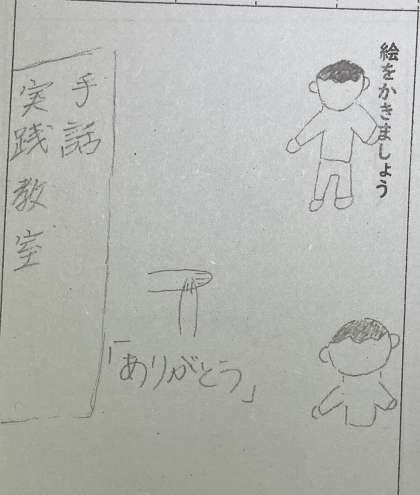 絵をかきましょう
手話
実践教室
「ありがとう」